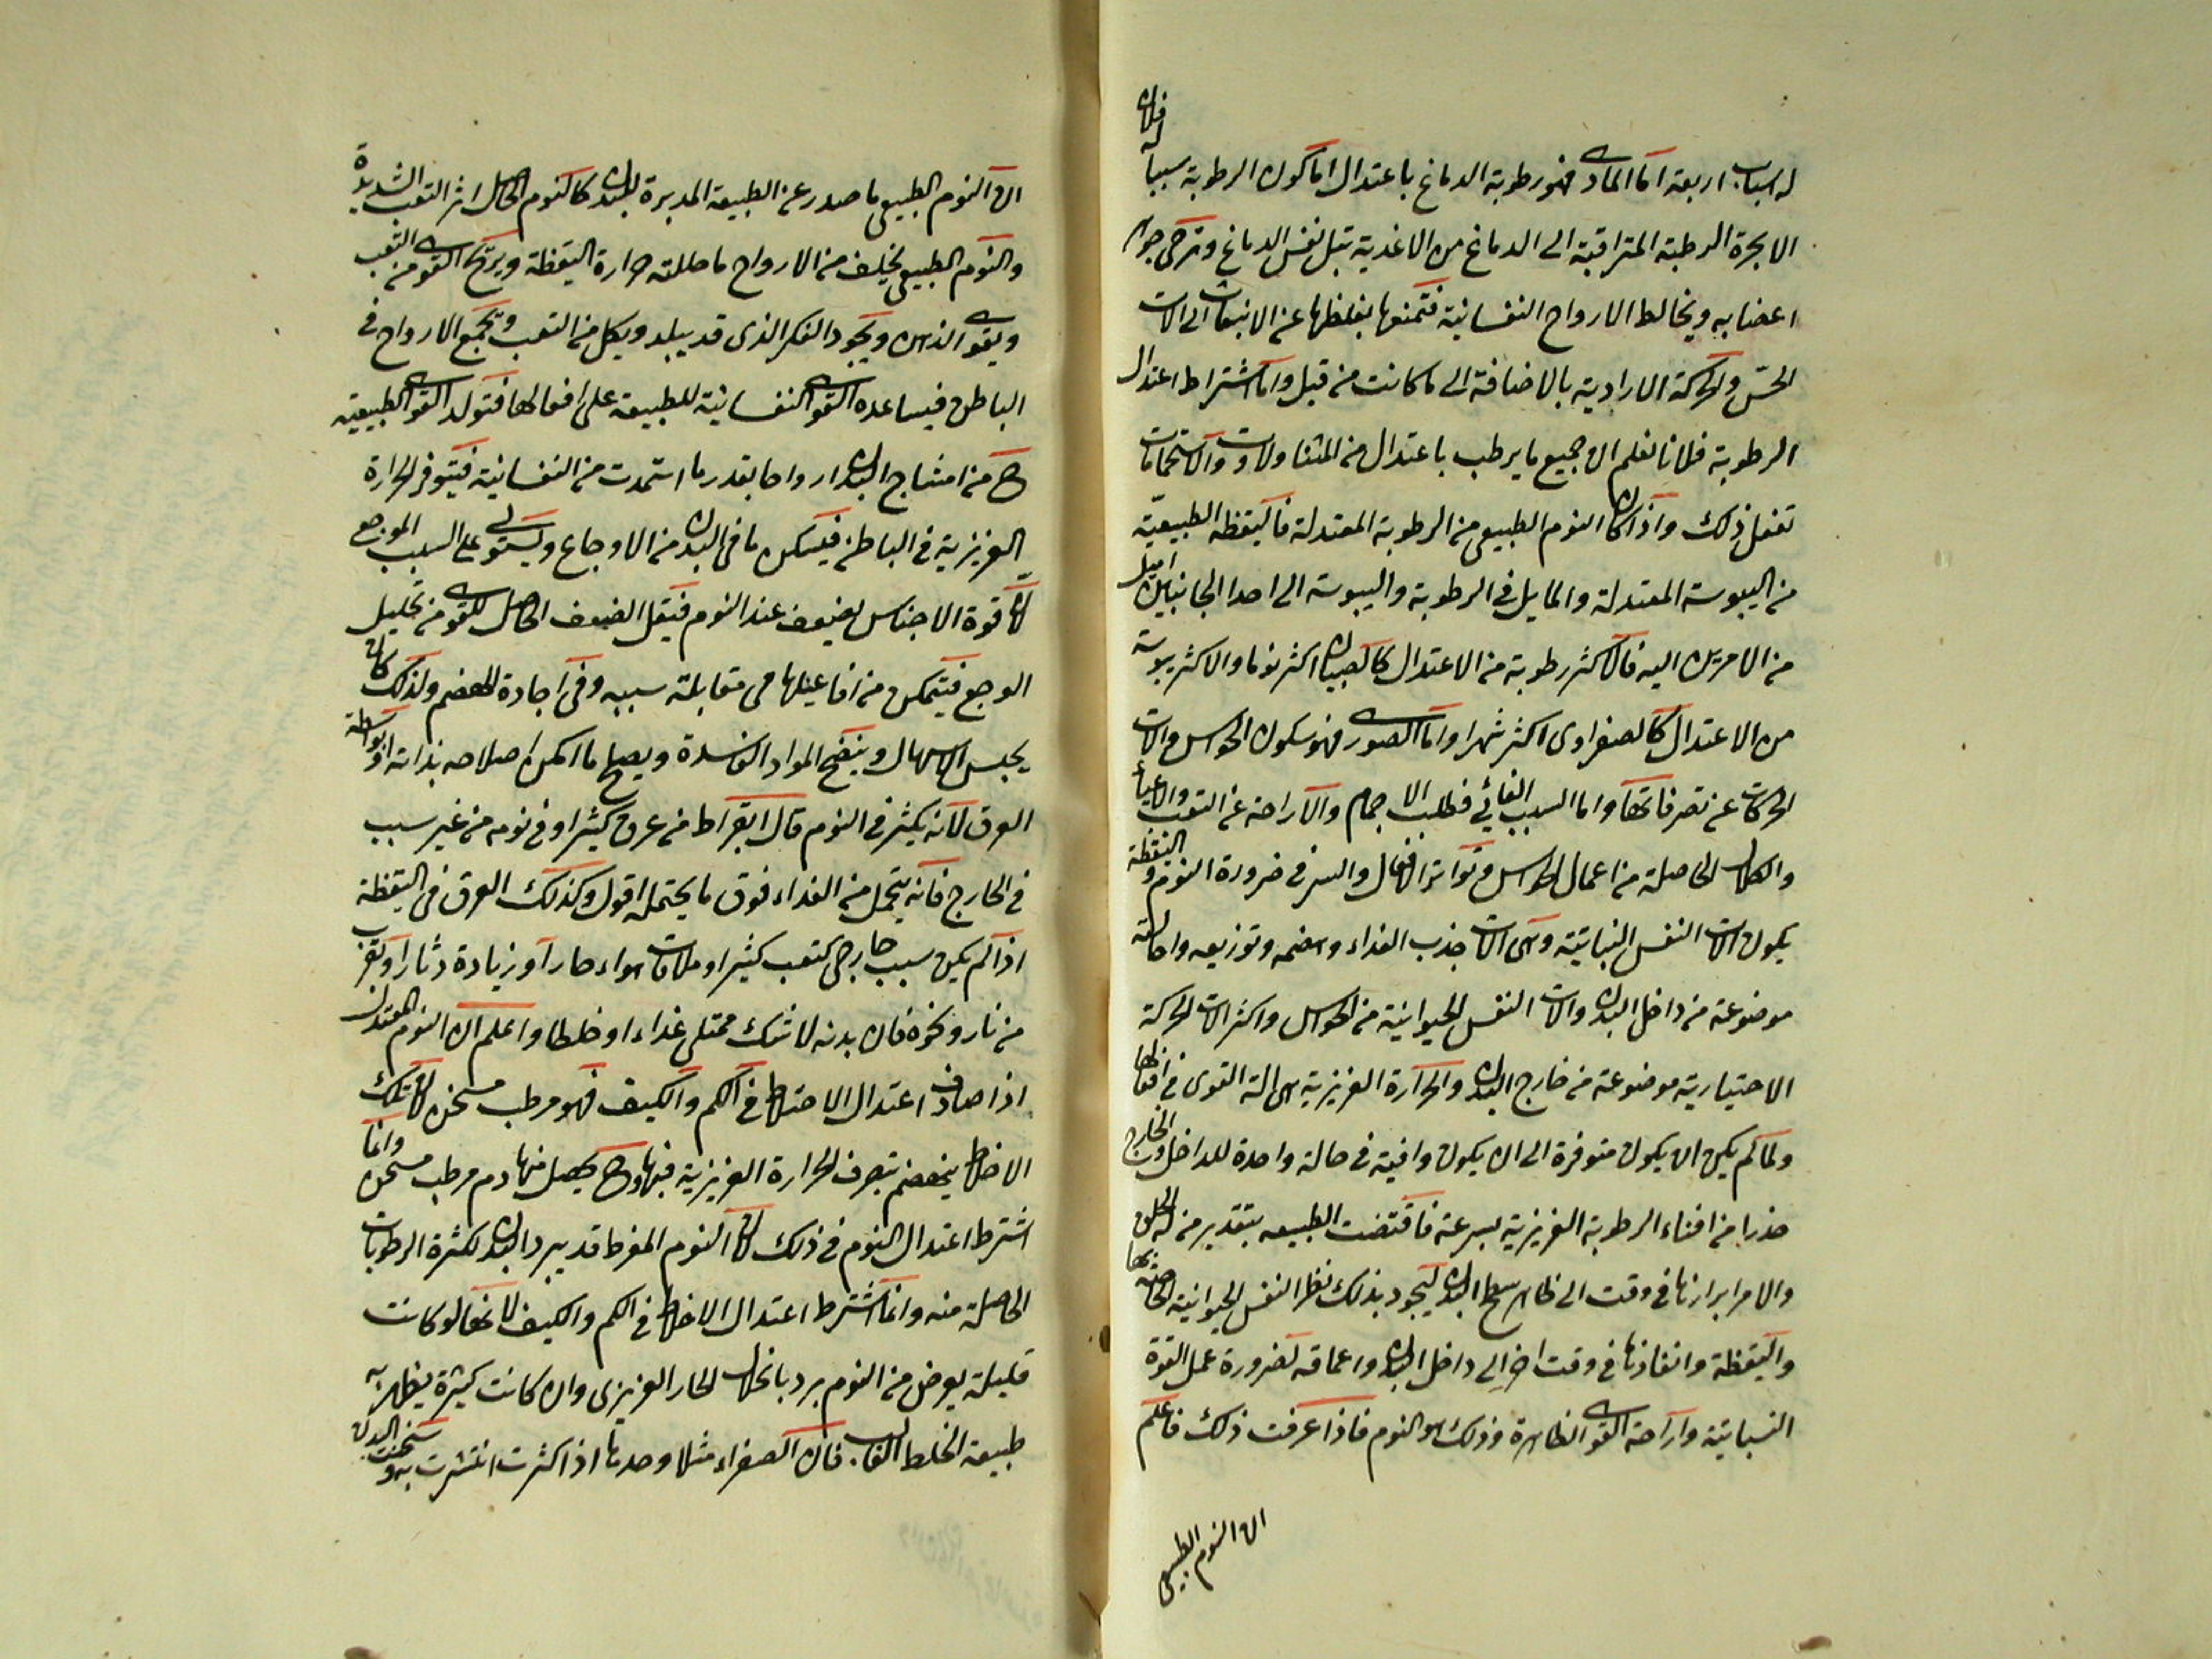 له اسباب اربعة اما المادى فهو رطوبة الدماغ باعتدال اما كون الرطوبة سببا له فلان
الابخرة الرطبة المتراقية الى الدماغ من الاغذية تبل نفس الدماغ وترخى جرم
اعصابه ويخالط الارواح النفسانية فتمنعها بغلظها عن الانبعاث الى الات
الحس والحركة الارادية بالاضافة الى ما كانت من قبل واما اشتراط اعتدال
الرطوبة فلانا نعلم ان جميع ما يرطب باعتدال من المتناولات والاستحمامات
تفعل ذلك واذا كان النوم الطبيعى من الرطوبة المعتدلة فاليقظة الطبيعية
من اليبوسة المعتدلة والمايل فى الرطوبة واليبوسة الى احد الجانبين اميل
من الامرين اليه فالاكثر رطوبة من الاعتدال كالصبيان اكثر نوما والاكثر يبوسة
من الاعتدال كالصفراوى اكثر سهرا واما الصورى فهو سكون الحواس والات
الحركات عن تصرفاتها واما السبب الغائى فطلب الاجمام والاراحة عن التعب والاعياء
والكلال الحاصلة من اعمال الحواس وتواتر الافعال والسر فى ضرورة النوم واليقظة
يكون الات النفس النباتية وهى الات جذب الغذاء وهضمه وتوزيعه واحالته
موضوعة من داخل البدن والات النفس الحيوانية من الحواس واكثر الات الحركة
الاختيارية موضوعة من خارج البدن والحرارة الغريزية هى الة القوى فى افعالها
ولما لم يكن ان يكون متوفرة الى ان يكون وافية فى حالة واحدة للداخل والخارج
حذرا من افناء الرطوبة الغريزية بسرعة فاقتضت الطبيعه بتقدير من له الخلق
والامر ابرازها فى وقت الى ظاهر سطح البدن ليجود بذلك نظر النفس الحيوانية الخاصة بها
واليقظة وانفاذها فى وقت اخر الى داخل البدن واعماقه لضرورة عمل القوة
النباتية واراحة القوى الظاهرة وذلك هو النوم فاذا عرفت ذلك فاعلم
ان النوم الطبيعى
ان النوم الطبيعى ما صدر عن الطبيعة المدبرة للبدن كالنوم الحاصل اثر التعب الشديدة
والنوم الطبيعى يخلف من الارواح ما حللته حرارة اليقظة ويريح القوى من التعب
ويقوى الذهن ويجود الفكر الذى قد يبلد ويكل من التعب ويجمع الارواح فى
الباطن فيساعده القوى النفسانية للطبيعة على افعالها فتولد القوى الطبيعية
ح من امشاج البدن ارواحا بقدر ما استمدت من النفسانية فيتوفر الحرارة
الغريزية فى الباطن فيسكن ما فى البدن من الاوجاع ويستولى على السبب الموجع
لان قوة الاجناس يضعف عند النوم فيقل الضعف الحاصل للقوى من تحليل
الوجع فيتمكن من افاعيلها فى مقابلة سببه وفى اجادة الهضم ولذلك كان
يحبس الاسهال وينضج المواد الفاسدة ويصلح ما امكن اصلاحه بذاته او بواسطة
العرق لانه يكثر فى النوم قال ابقراط من عرق كثيرا وفى نومه من غير سبب
فى الخارج فانه يتحمل من الغذاء فوق ما يحتمله اقول وكذلك العرق فى اليقظة
اذا لم يكن سبب خارجى كتعب كثير او ملاقات هواء حار او زيادة دثار او تقرب
من نار ونحوه فان بدنه لا شك ممتلى غذاء او خلطا واعلم ان النوم المعتدل
اذا صادف اعتدال الاخلاط فى الكم والكيف فهو مرطب مسخن لان تلك
الاخلاط ينهضم بتصرف الحرارة الغريزية فيها وح يحصل منها دم مرطب مسخن وانما
اشترط اعتدال النوم فى ذلك لان النوم المفرط قد يبرد البدن لكثرة الرطوبات
الحاصلة منه وانما اشترط اعتدال الاخلاط فى الكم والكيف لانها لو كانت
قليلة يعرض من النوم برد بانحلال الحار الغريزى وان كانت كثيرة يظهر به
طبيعة الخلط الغالب فان الصفراء مثلا وحدها اذا كثرت انتشرت به وسخنت البدن